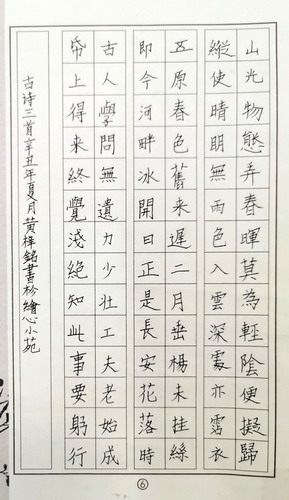 山光物態弄春暉莫為輕陰便擬歸
縱使晴明無雨色入雲深處亦霑衣
五原春色舊来遲二月垂楊未挂絲
即今河畔冰開日正是長安花落時
古人學問無遺力少壯工夫老始成
帋上得来終覺淺絕知此事要躬行
古诗三首辛丑年夏月黄梓銘書扵繪心小苑
⑥